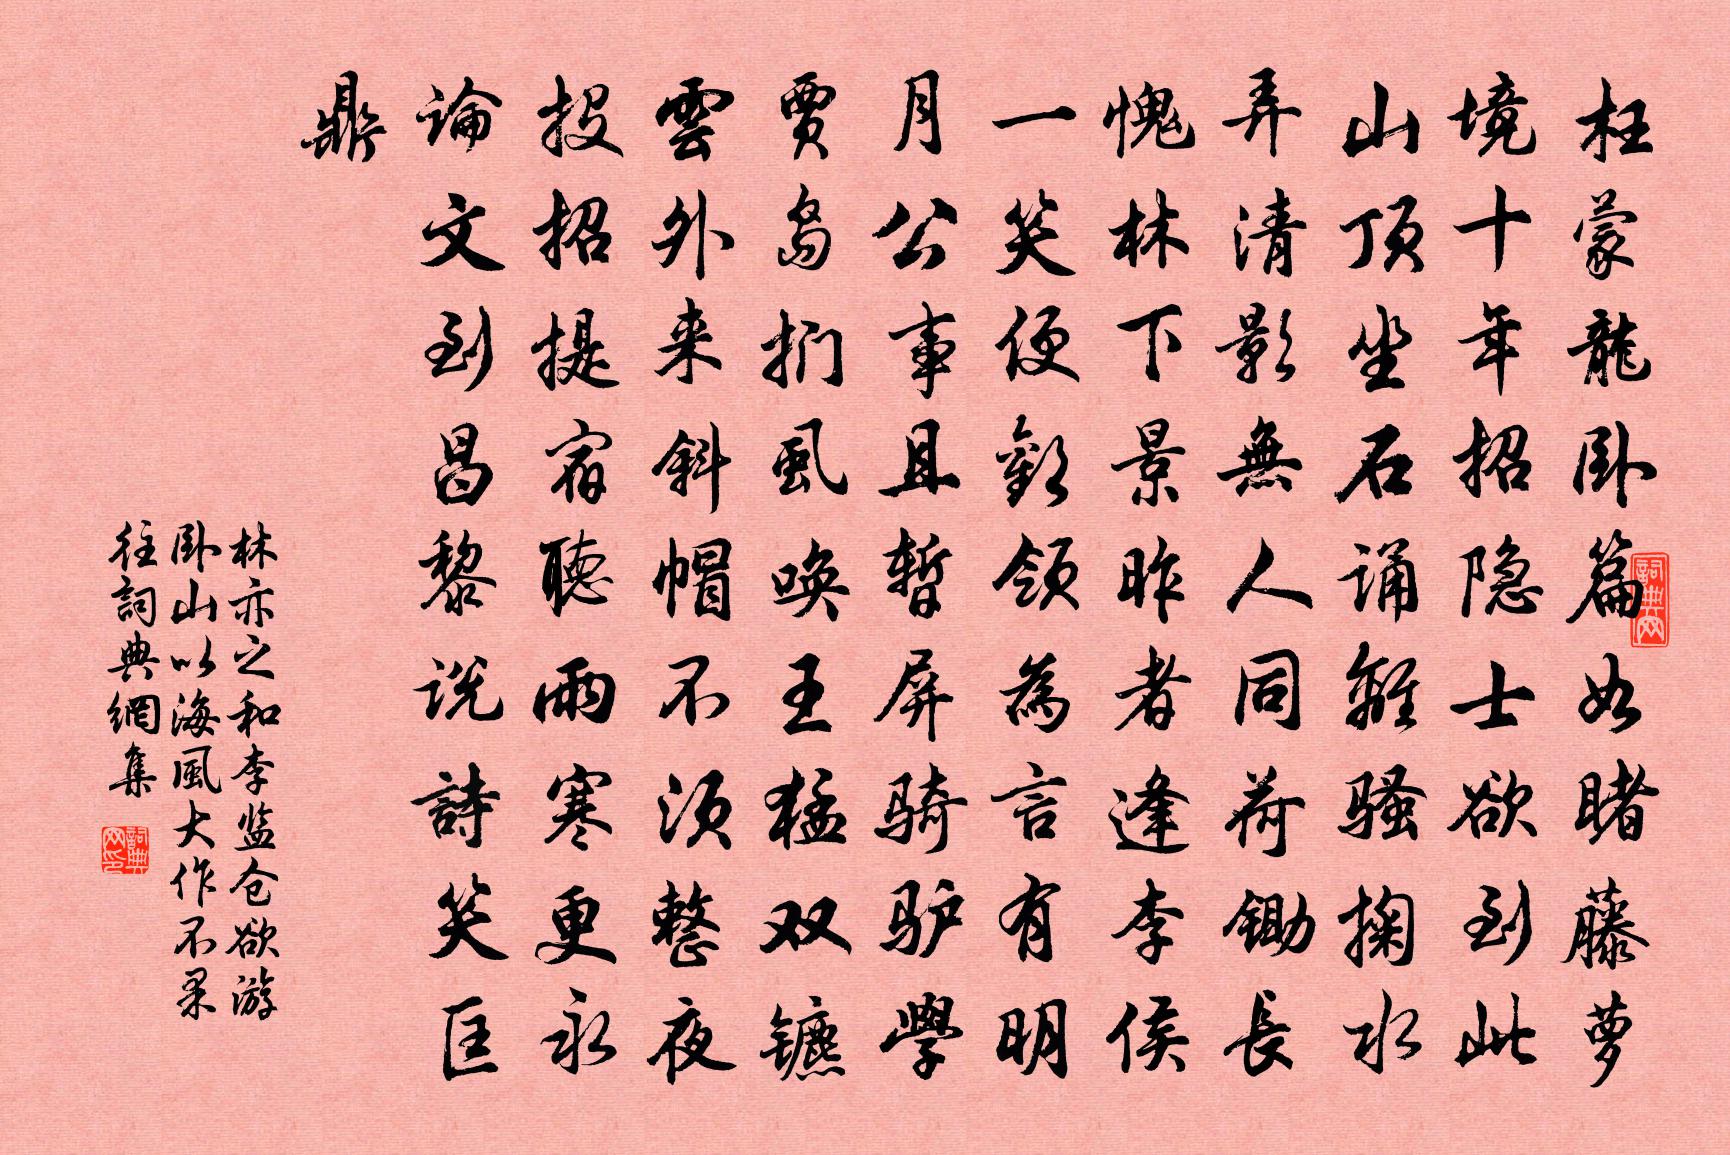 枉蒙龍卧篇如睹藤萝
境十年招隐士欲到此
山顶坐石诵離骚掬水
弄清影無人同荷锄長
愧林下景昨者逢李侯
一笑便歡领為言有明
月公事且暫屏骑驴學
贾岛捫虱唤王猛双镳
雲外来斜帽不须整夜
投招提宿聽雨寒更永
論文到昌黎说詩笑匡
鼎
林亦之和李监仓欲游
卧山以海風大作不果
往詞典網集
詞典网
詞典网印